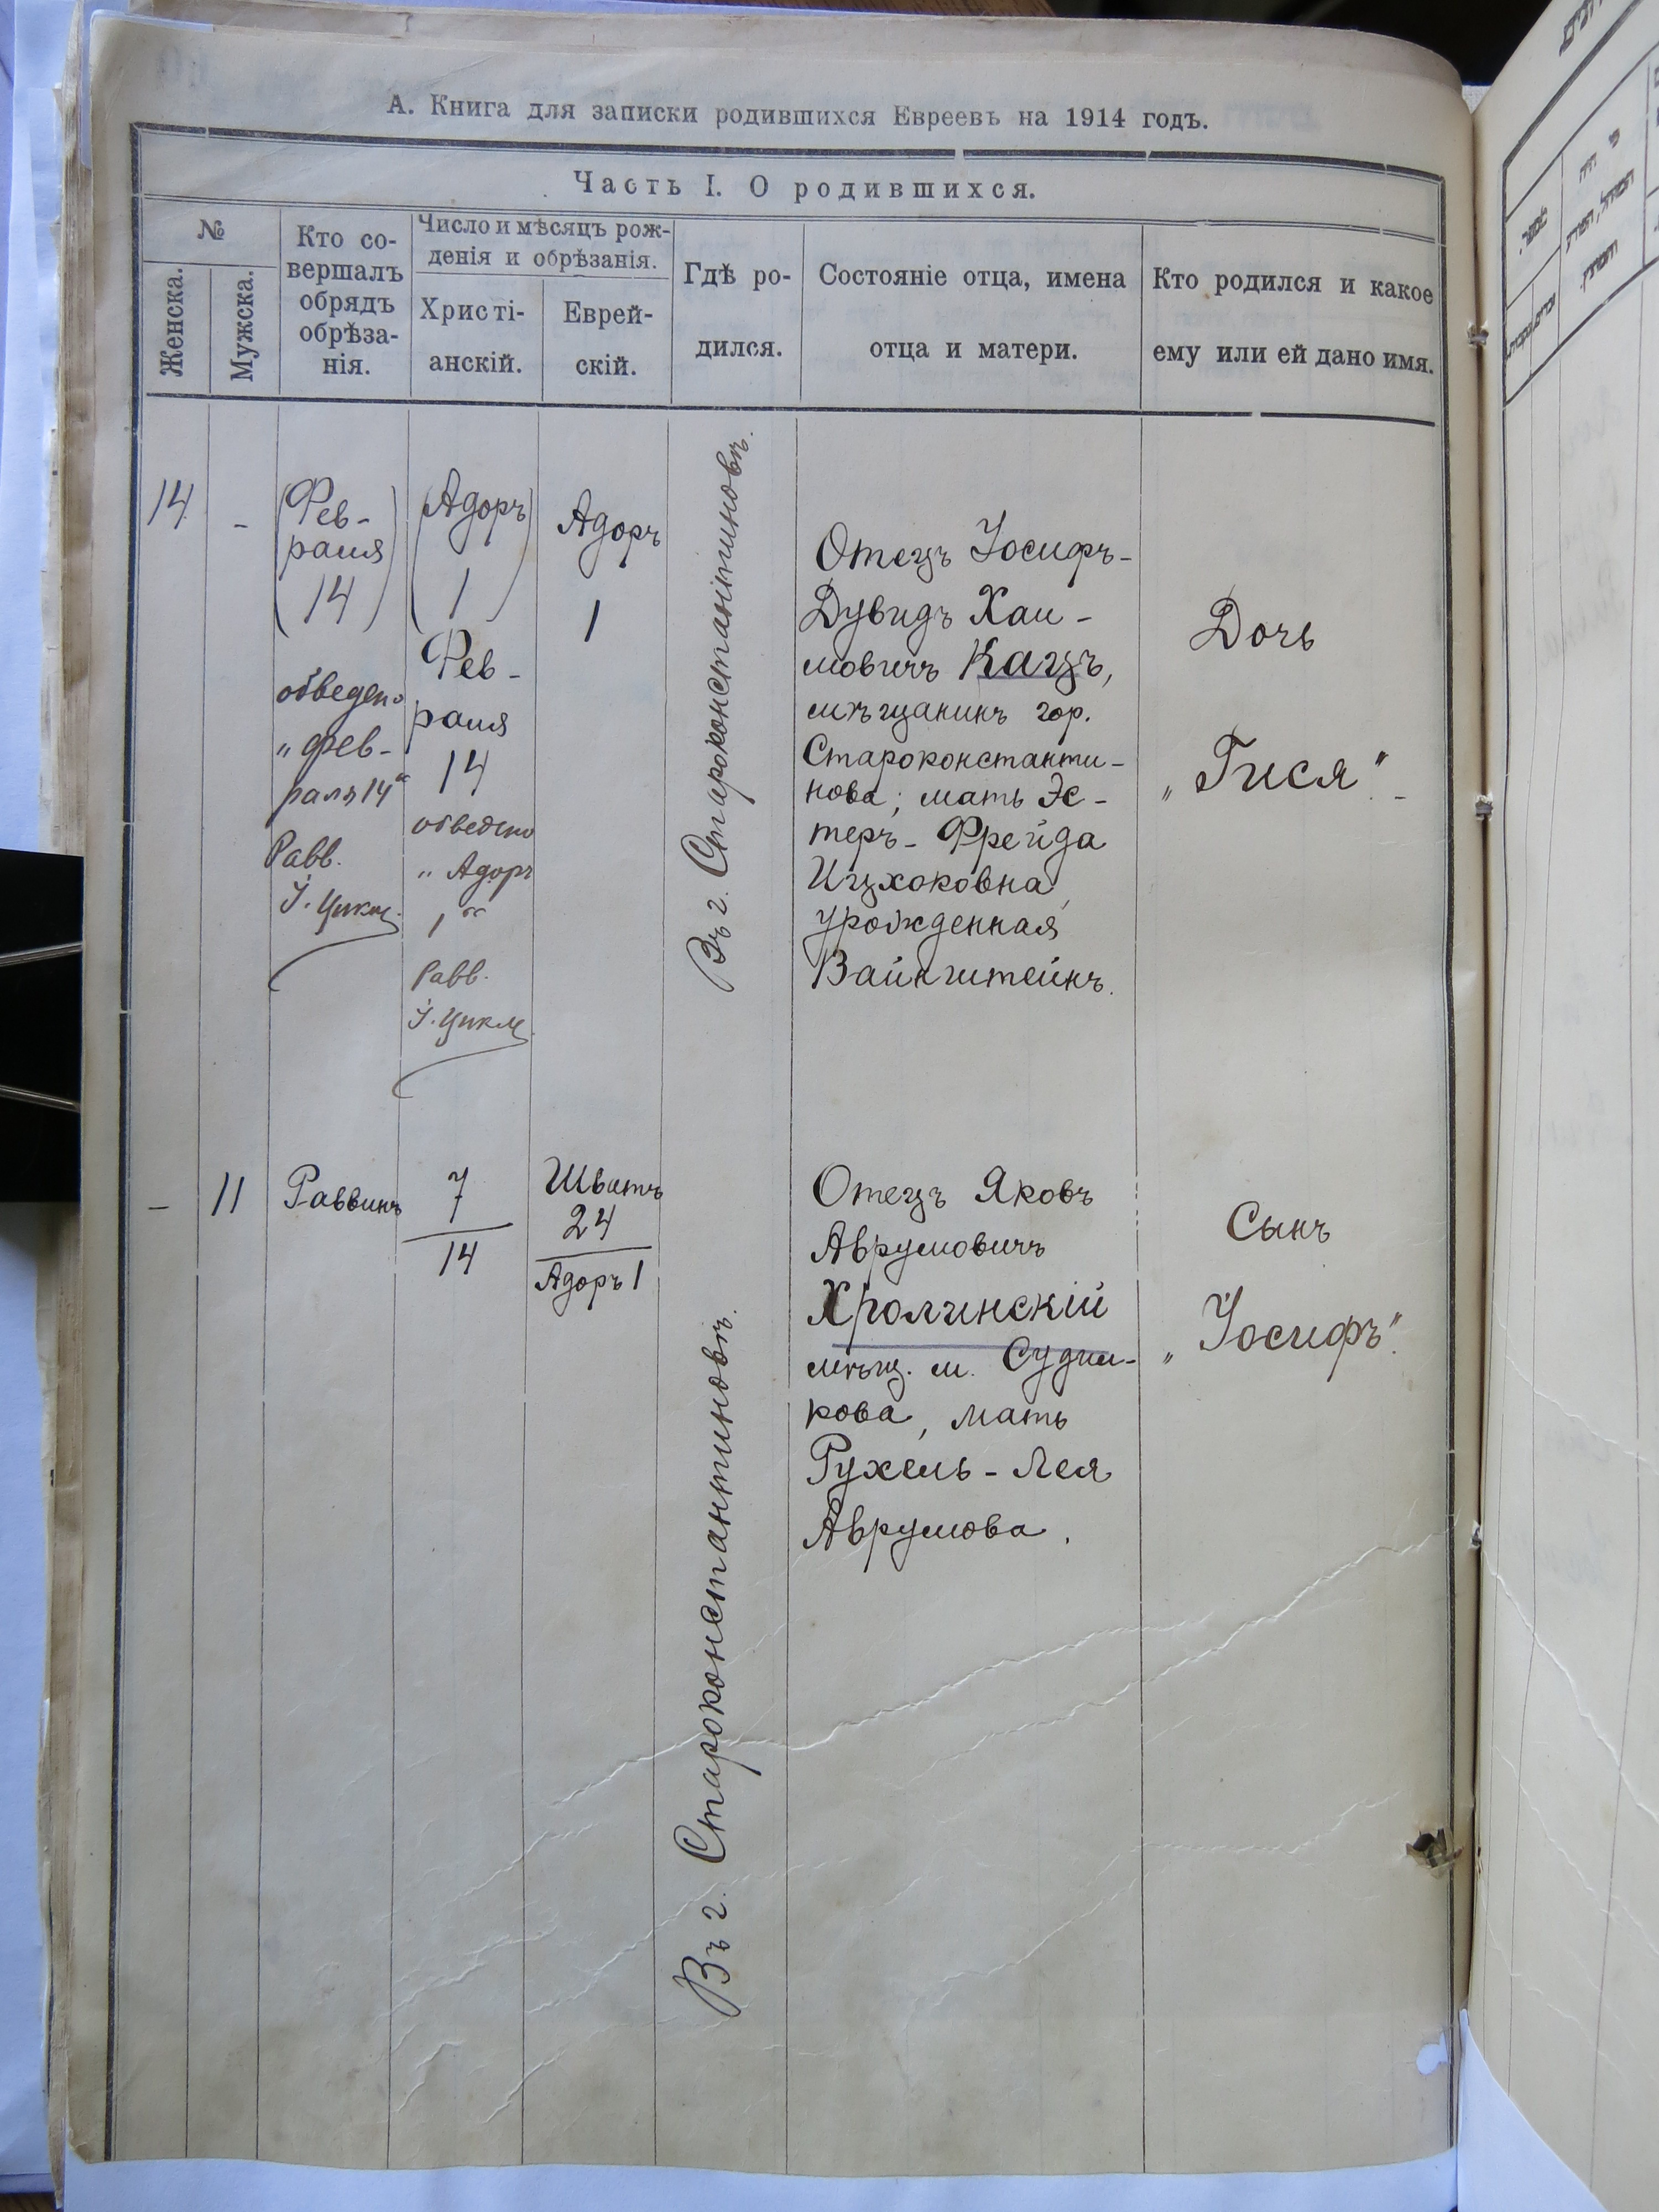 А. Книга для записки родившихся Евреевъ на 1914 годъ.
Часть I. О родившихся.
№
Женска.
Мужска.
Кто со-
вершалъ
обрядъ
обрѣза-
нія.
Число и мѣсяцъ рож-
денія и обрѣзанія.
Христі-
анскій.
Еврей-
скій.
Гдѣ ро-
дился.
Состояніе отца, имена
отца и матери.
Кто родился и какое
ему или ей дано имя.
14
-
(Фев-
раля
14)
обведено
„фев-
раля 14“
Равв.
І. Цикл
(Адоръ
1)
Фев-
раля
14
обведено
„Адоръ
1“
Равв.
І. Цикл
Адоръ
1
Въ г. Староконстантиновѣ.
Отецъ Іосифъ-
Дувидъ Хаи-
мовичъ Кацъ,
мѣщанинъ гор.
Староконстанти-
нова; мать Эс-
теръ-Фрейда
Ицхоковна,
урожденная
Вайнштейнъ.
Дочь
„Гися“.-
-
11
Раввинъ
7
14
Шватъ
24
Адоръ 1
Въ г. Староконстантиновѣ.
Отецъ Яковъ
Аврумовичъ
Хролинскій
мѣщ. м. Судил-
кова, мать
Рухель-Лея
Аврумова.
Сынъ
„Іосифъ“.